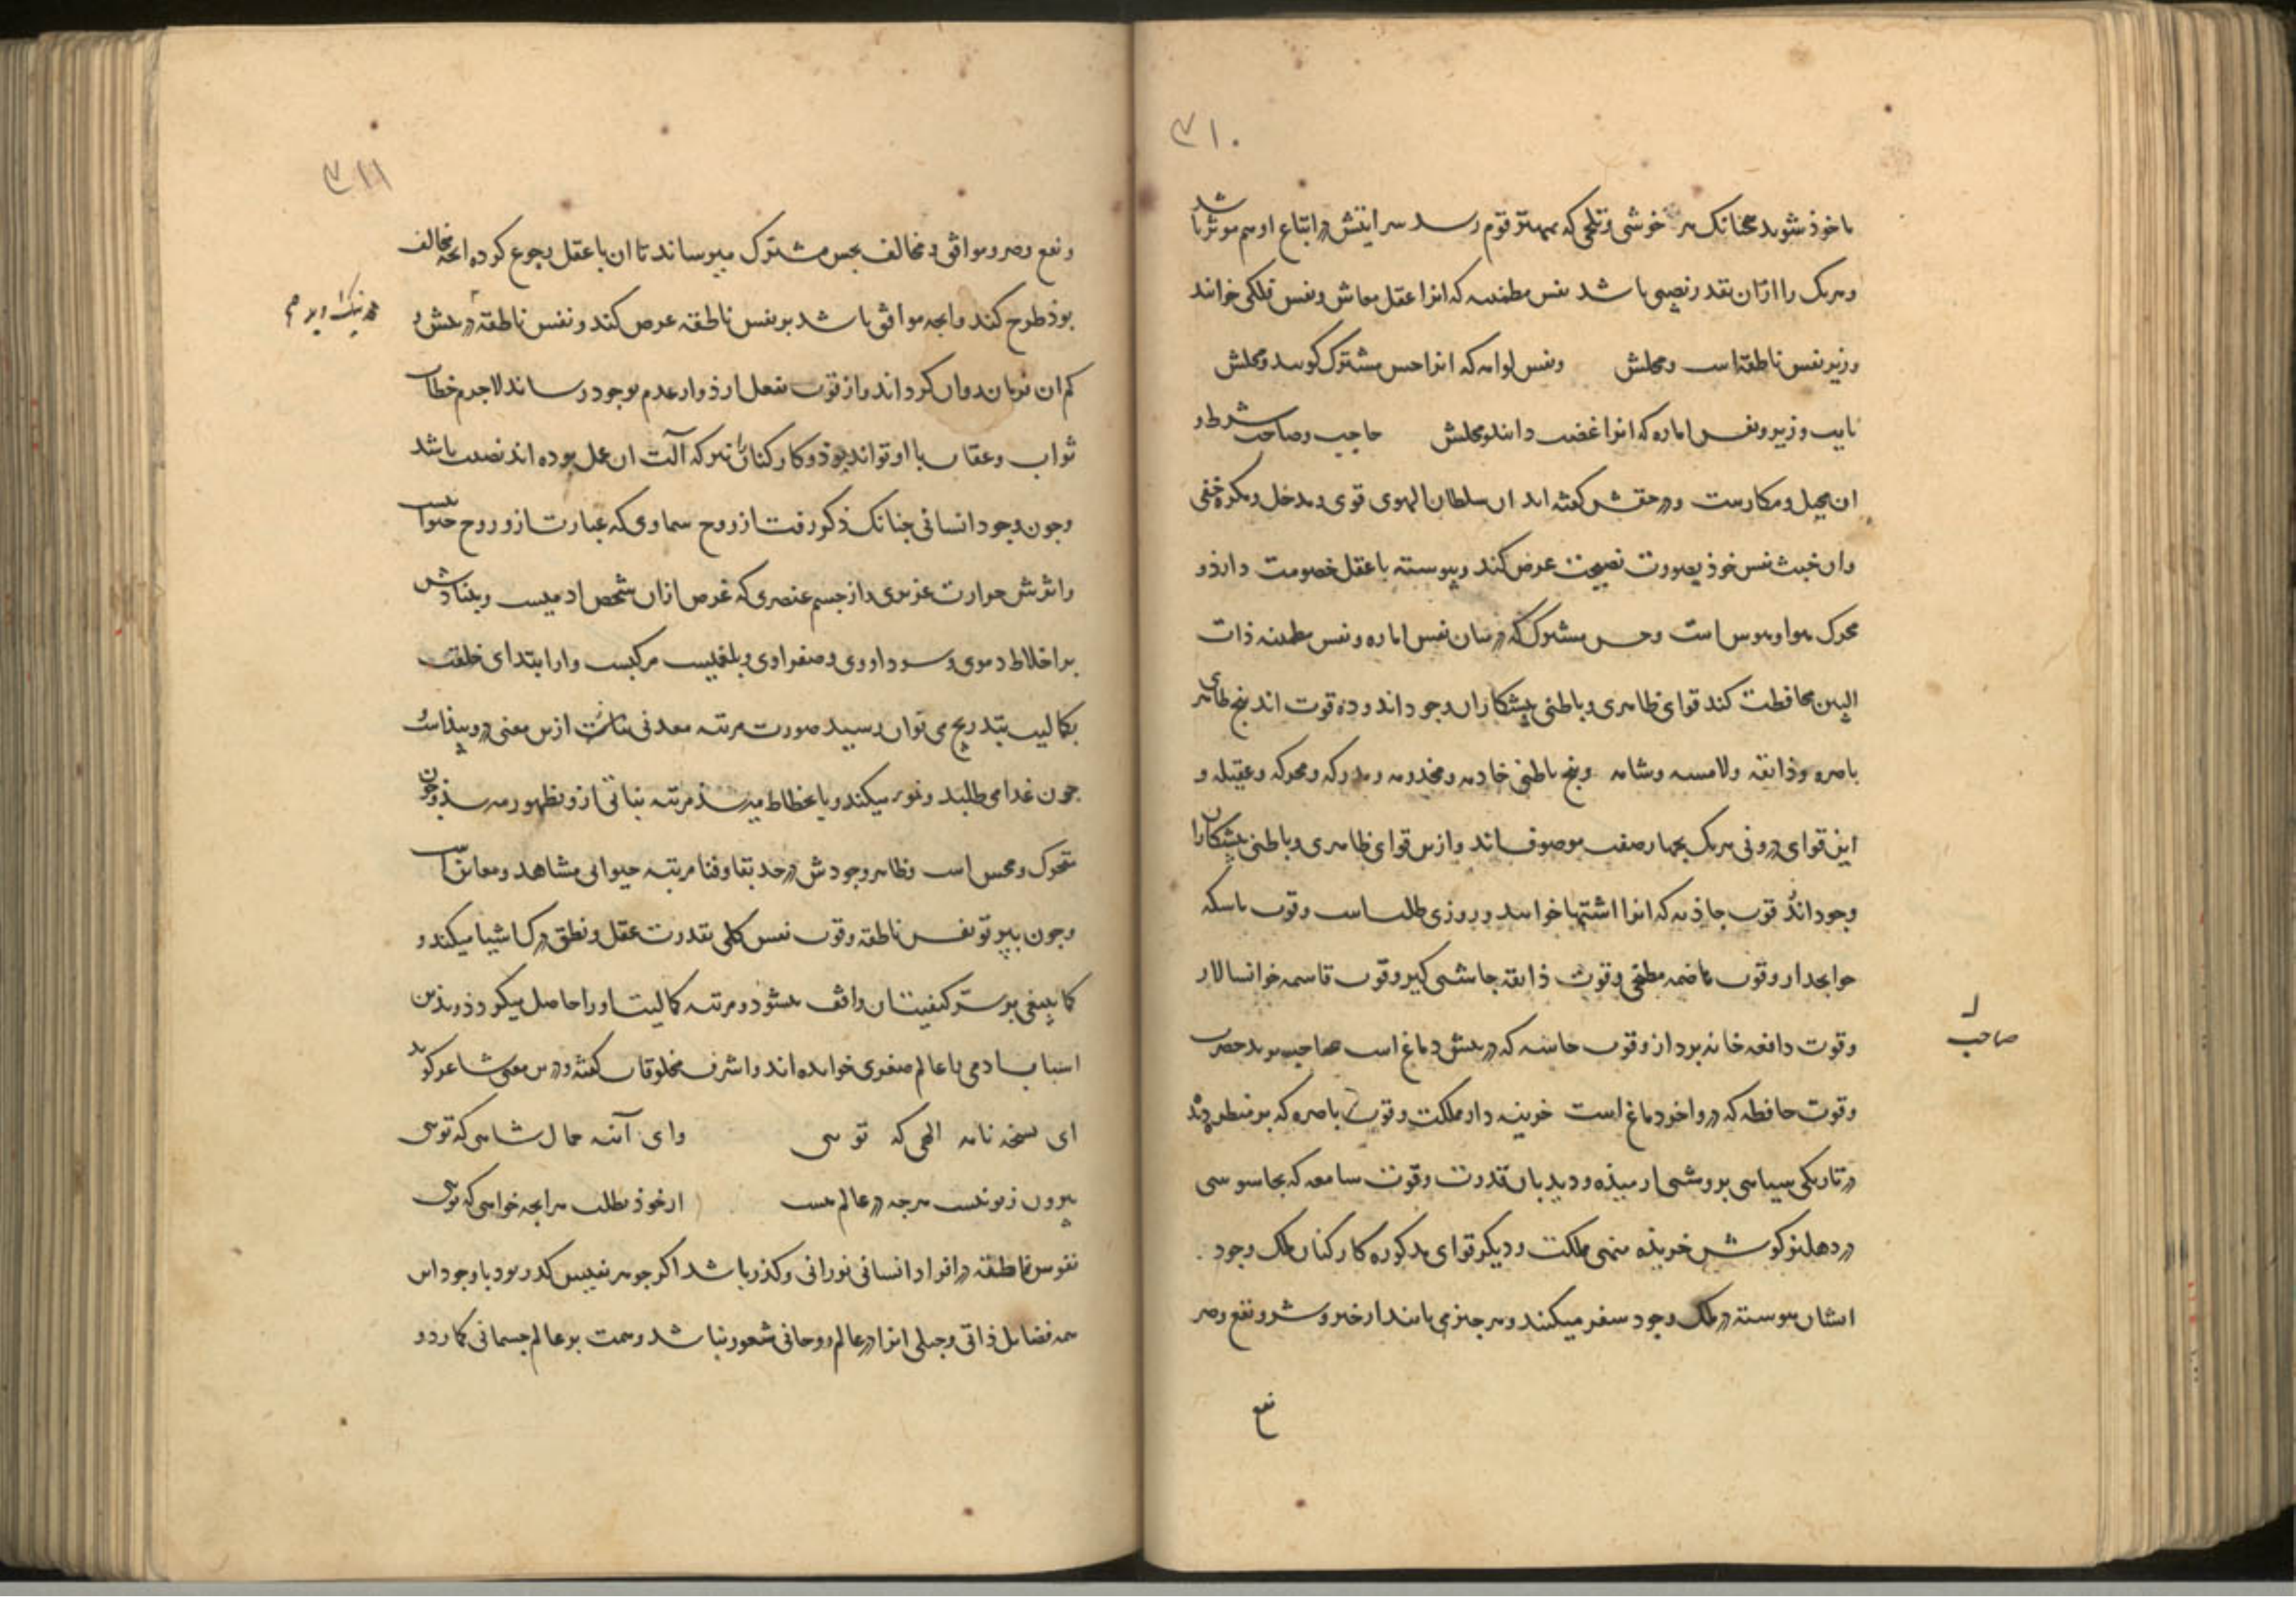 ۳۱۰
ماخوذ شوند همچنانک هر خوشی و تلخی که بمهتر قوم رسد سرایتش در اتباع او هم موثر باشد
و هریک را از آن بقدر نصیبی باشد نفس مطمئنه که انرا عقل معاش و نفس فلکی خوانند
وزیر نفس ناطقه است و محلش و نفس لوامه که انرا حس مشترک گویند و محلش
نایب وزیر و نفس اماره که انرا غضب دانند و محلش حاجب و صاحب شرط و
ان محیل و مکارست و در حقش گفته اند ان سلطان الهوی قوی و مدخل و مکره خفی
وان خبث نفس خوذ بصورت نصیحت عرض کند و پیوسته با عقل خصومت دارذ و
محرک هوا و هوس است و حس مشترک که در میان نفس اماره و نفس مطمئنه ذات
البین محافظت کند قوای ظاهری و باطنی پیشکاران وجود اند و ده قوت اند پنج ظاهری
باصره و ذایقه و لامسه و شامه و پنج باطنی خادمه و مخدومه و مدرکه و محرکه و عقیله و
این قوای درونی هریک بچهار صفت موصوف اند و ازین قوای ظاهری و باطنی پیشکاران
وجود اند قوت جاذبه که انرا اشتها خوانند و روزی طلب است و قوت ماسکه
خوابحدار و قوت هاضمه مطبخی و قوت ذایقه چاشنی گیر و قوت قاسمه خوانسالار
وقوت دافعه خانه برداز و قوت حاسه که در پیش دماغ است صاحب برید حضرت
صاحب
وقوت حافظه که در واخر دماغ است خزینه دار مملکت و قوت باصره که بر منظر دیده
در تاریکی سیاهی بروشنی ارمیذه و دیدبان قدرت و قوت سامعه که بجاسوسی
در دهلیز گوش خزیذه منهی مملکت و دیگر قوای مذکوره کارکنان ملک وجود
ایشان پیوسته در ملک وجود سفر میکنند و هر چیزی یابند از خیر و شر و نفع و ضر
نفع
۳۱۱
و نفع و ضر و موافق و مخالف بحس مشترک میرساند تا ان با عقل رجوع کرده انچه مخالف
بوذ طرح کند و انچه موافق باشد بر نفس ناطقه عرض کند و نفس ناطقه در پیش و
کم ان فرمان روان گرداند و از قوت بفعل ارذ و از عدم بوجود رساند لاجرم خطاب
ثواب و عقاب با او تواند بوذ و کارکنان نیز که آلت ان عمل بوده اند نصیب باشد
وجون وجود انسانی چنانک ذکر رفت از روح سماوی که عبارت ازو روح حیوانیست
واثرش حرارت غریزی و از جسم عنصری که غرض ازان شخص ادمیست و بنیادش
بر اخلاط دموی و سوداووی و صفراوی و بلغمیست مرکبست و از ابتدای خلقت
بکمالیت بتدریج می توان رسید صورت مرتبه معدنی ازین معنی درو پیذاست و
چون غدا می طلبد و نمو میکند و یا بانحطاط میرسذ مرتبه نباتی ازو بظهور میرسذ و چون
متحرک و محس است و ظاهر وجودش در حد بقا و فنا مرتبه حیوانی مشاهد و معاین است
وجون بپرتو نفس ناطقه و قوت نفس کلی بقدرت عقل و نطق درک اشیا میکند و
کما ینبغی بر سر کیفیت ان واقف میشود و مرتبه کمالیت او را حاصل میگردد و بذین
اسباب ادمی را عالم صغری خوانده اند و اشرف مخلوقات گفته و درین معنی شاعر گوید
ای نسخه نامه الهی که تویی وای آینه جمال شاهی که تویی
بیرون ز تو نیست هرچه در عالم هست از خوذ بطلب هرانچه خواهی که تویی
نفوس ناطقه در افراد انسانی نورانی و کذر باشد اگر جوهر نفیس کدر بود با وجود این
همه فضایل ذاتی و جبلی انرا در عالم روحانی شعور نباشد و همت بر عالم جسمانی گمارد و